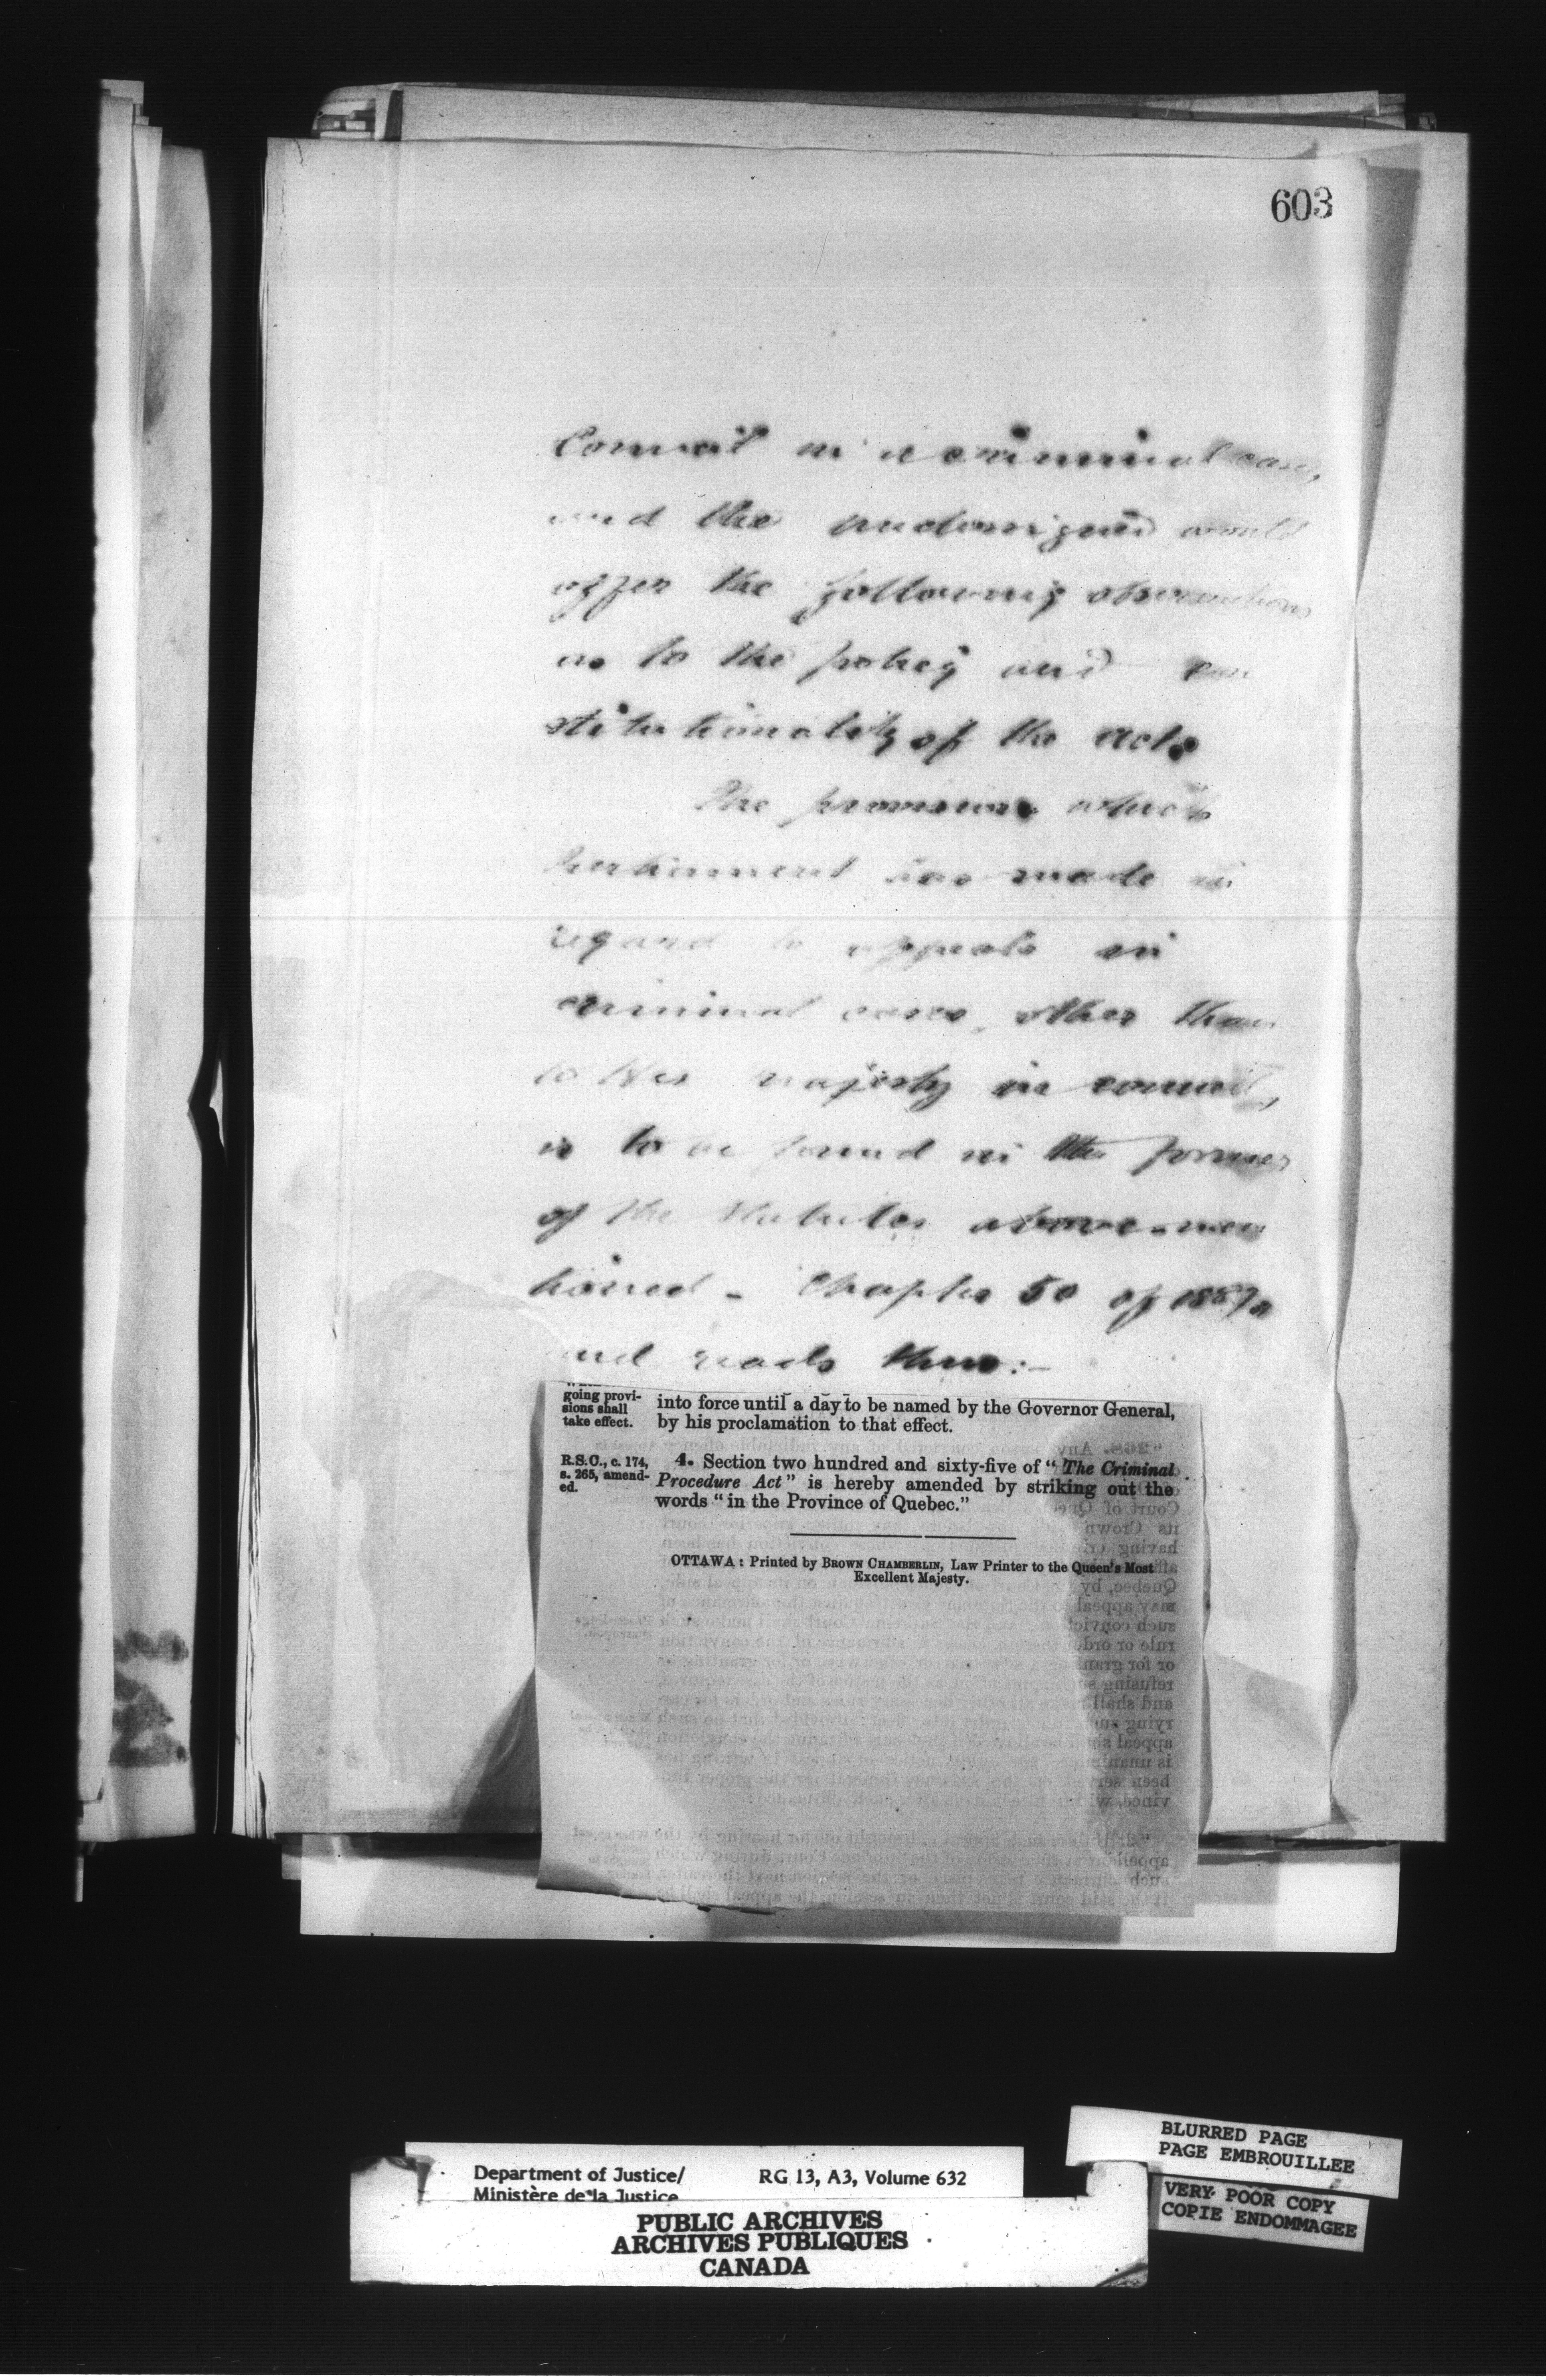 603
Council in a criminal case,
and the undersigned would
offer the following observations
as to the policy and con
stitutionality of the acts
The provision which
Parliament has made in
regard to appeals in
criminal cases, other than
to Her Majesty in council,
is to be found in the former
of the Statutes above-men
tioned - Chapter 50 of 1887,
and reads thus:-
going provi-
sions shall
take effect.
into force until a day to be named by the Governor General,
by his proclamation to that effect.
R.S.C., c. 174,
s. 265, amend-
ed.
4. Section two hundred and sixty-five of "The Criminal
Procedure Act" is hereby amended by striking out the
words "in the Province of Quebec."
OTTAWA: Printed by BROWN CHAMBERLIN, Law Printer to the Queen's Most
Excellent Majesty.
BLURRED PAGE
PAGE EMBROUILLEE
VERY POOR COPY
COPIE ENDOMMAGEE
Department of Justice/ RG 13, A3, Volume 632
Ministère de la Justice
PUBLIC ARCHIVES
ARCHIVES PUBLIQUES
CANADA